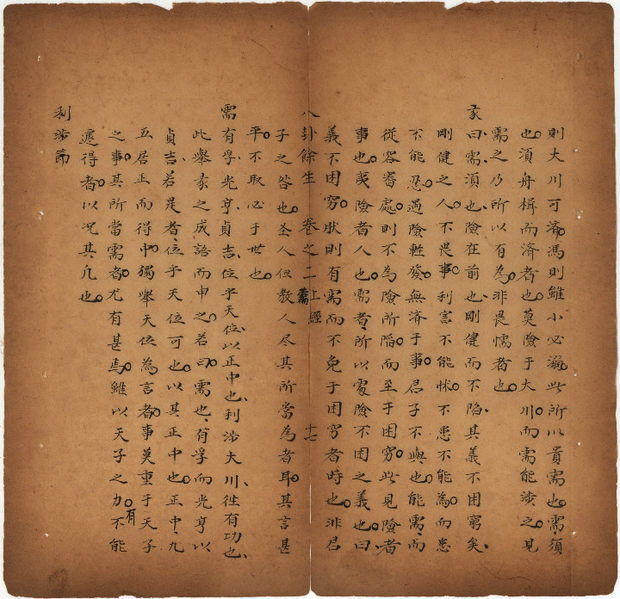 則大川可濟馮則雖小必溺此所以貴需也需須
也須舟楫而濟者也莫險于大川而需能涉之見
需之乃所以有為非畏懦者也
彖曰需須也險在前也剛健而不陷其義不困窮矣
剛健之人不畏事利害不能怵不患不能為而患
不能忍遇險輕發無濟于事君子不與也能需而
從容審處則不為險所陷而至于困窮此見險者
事也夷險者人也需者所以處險不困之義也曰
義不困窮狀則有需而不免于困窮者時也非君
八卦餘生 卷之二 上經 需 十七
子之咎也圣人但教人尽其所當為者耳其言甚
平不取必于世也
需有孚光亨貞吉位乎天位以正中也利涉大川往有功也
此舉彖之成語而申之若曰需也有孚而光亨以
貞吉若是者位乎天位可也以其正中也正中九
五居正而得中獨舉天位為言者事莫重于天子
之事其所當需者尤有甚焉雖以天子之力有不能
遽得者以況其凡也
利涉節